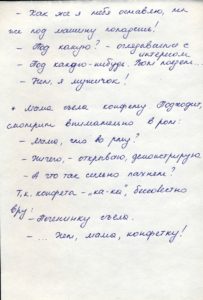 - Как же я тебя оставлю, ты
же под машину попадешь!
- Под какую? - оглядываюсь с
интересом.
- Под какую-нибудь. Вон
- Нет, я мужичок!
* Мама съела конфету. Подходит,
смотрит внимательно в рот:
- Мама, что во рту?
- Ничего, - открываю, демонстрирую.
- А что так сильно пахнет?
Т.к. конфета - "ка-ка", бессовестно
вру:
- Печенинку съела.
- ... Нет, мама, конфетку!